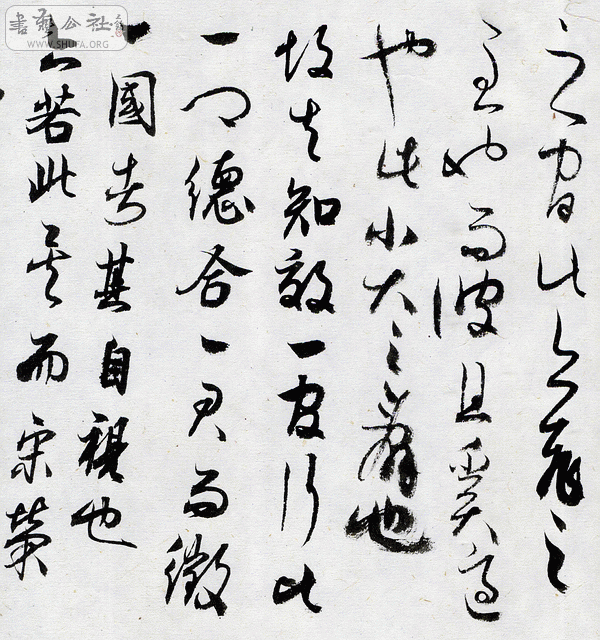 之間此亦飛之
至也而彼且奚適
也此小大之辯也
故夫知效一官行比
一鄉德合一君而徵
一國者其自視也
亦若此矣而宋榮
書法公社
WWW.SHUFA.ORG